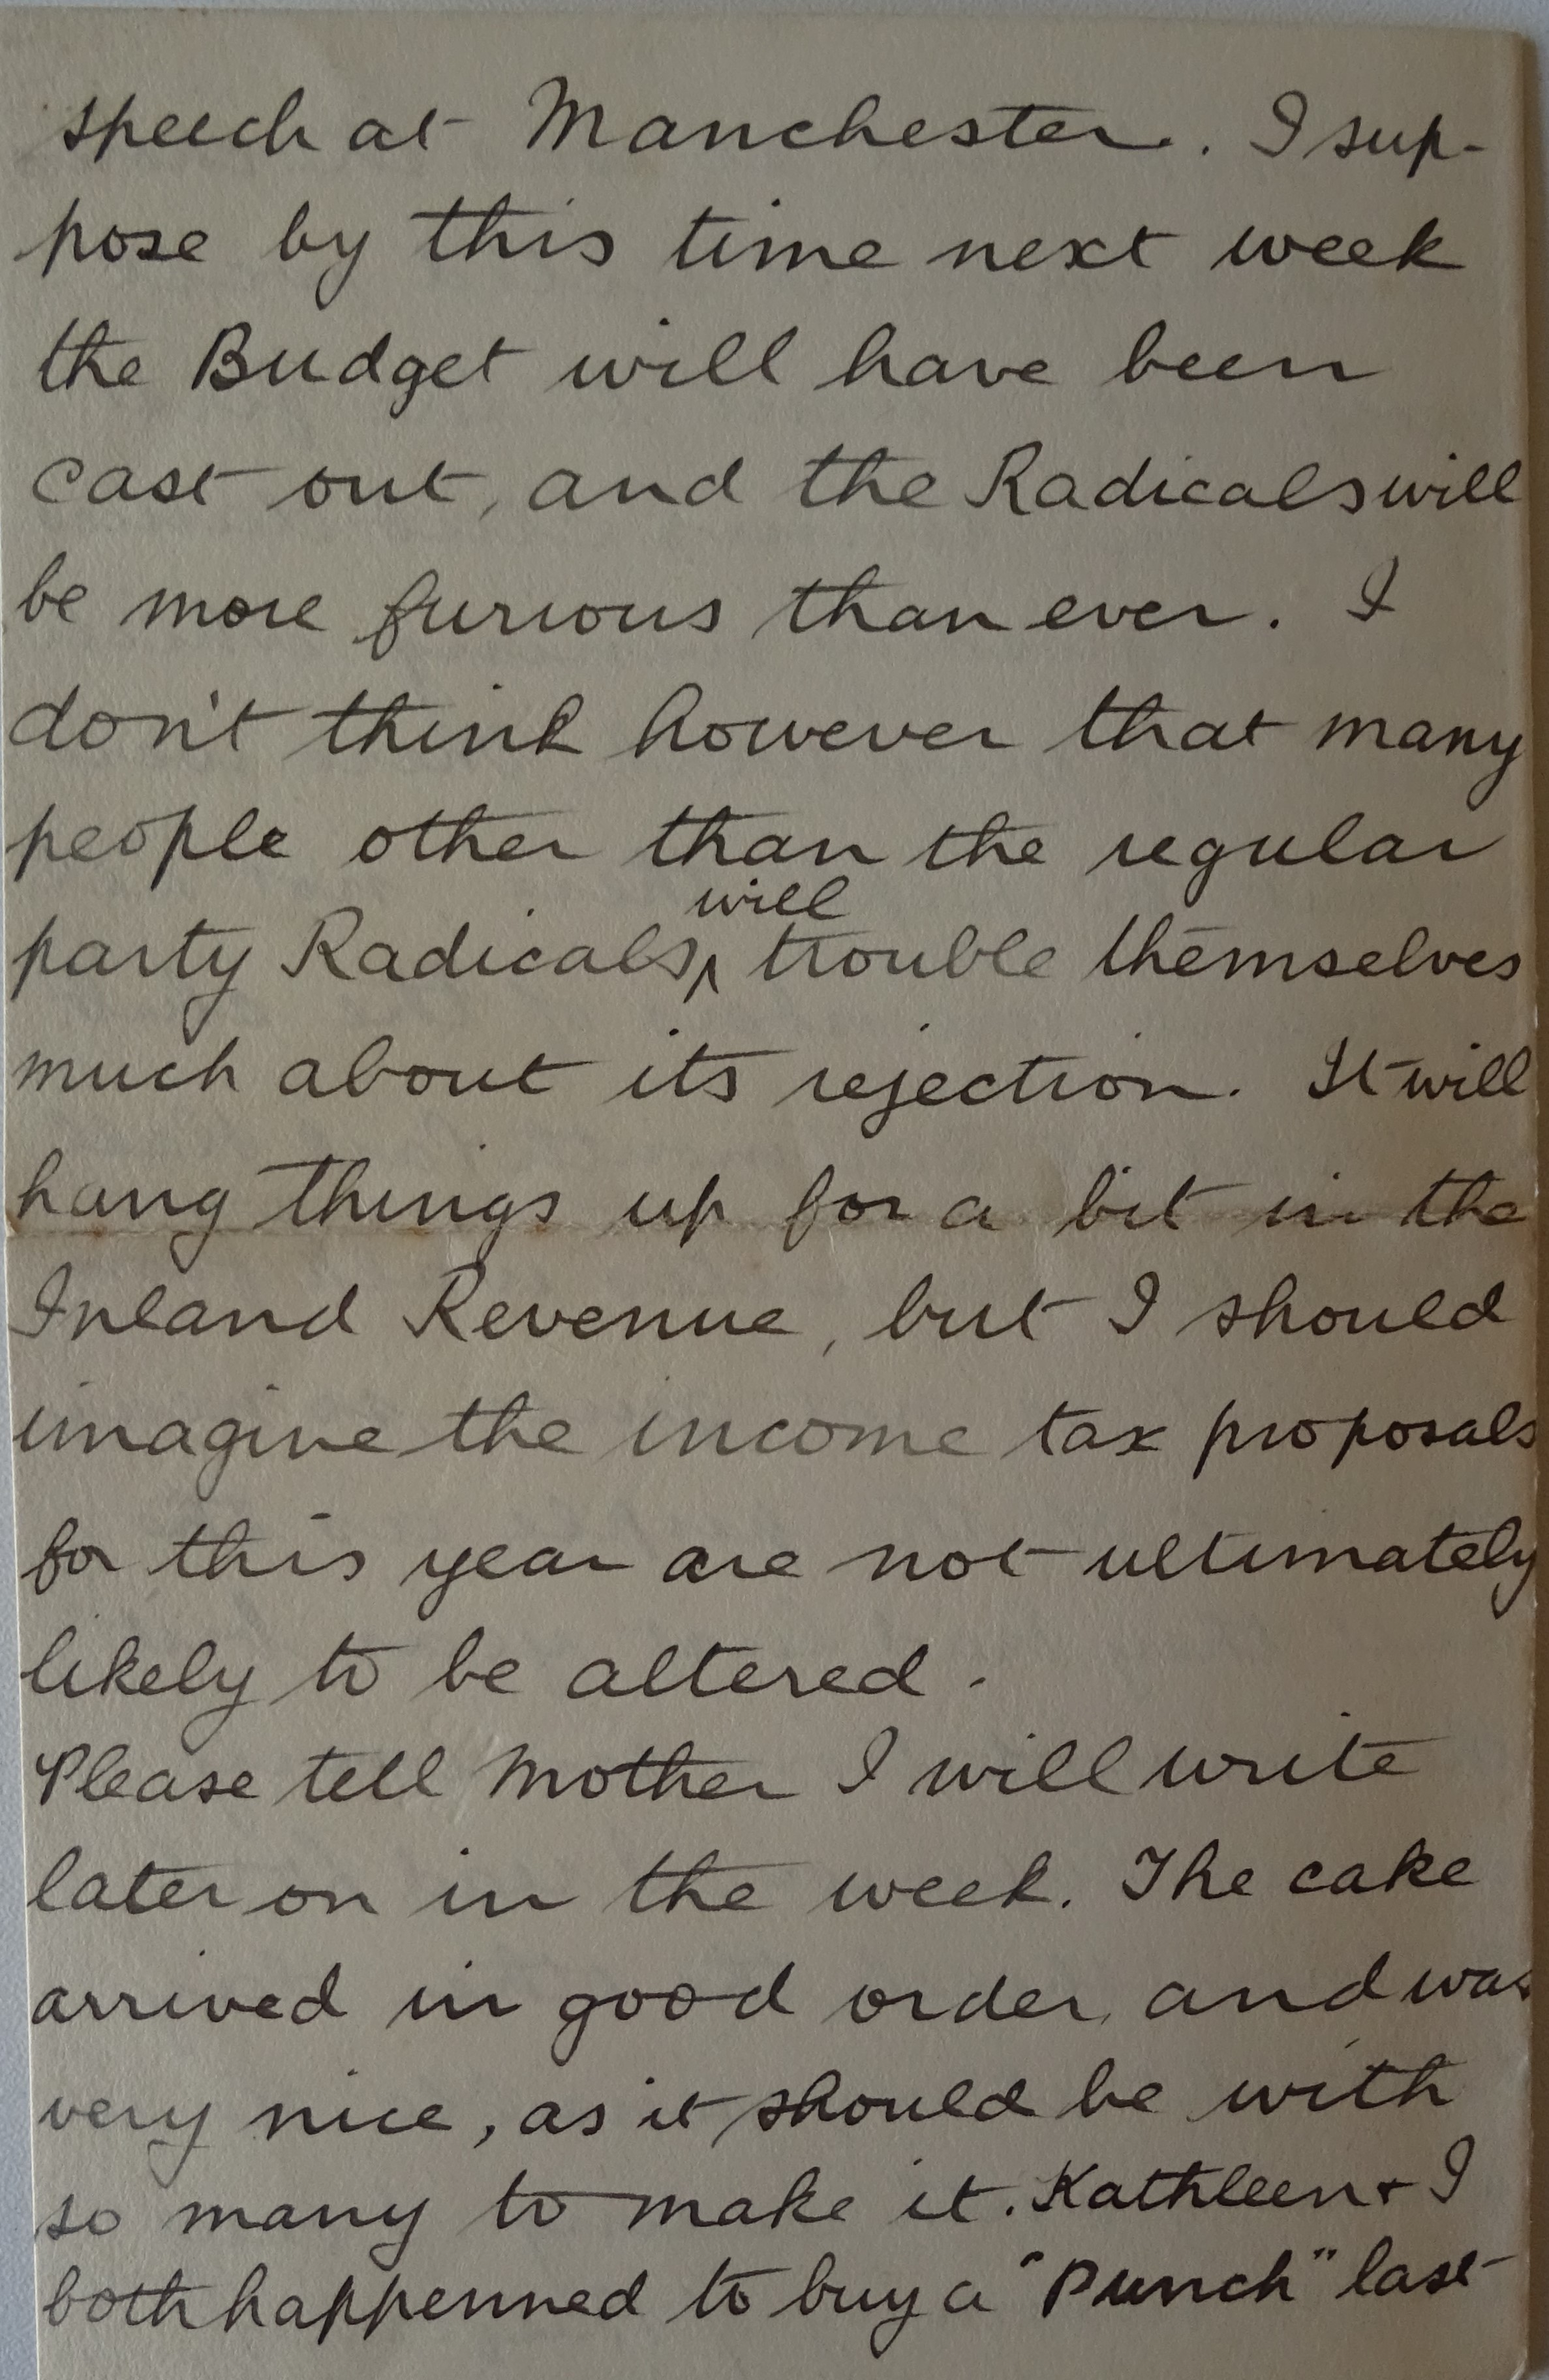 speech at Manchester. I sup-
pose by this time next week
the Budget will have been
cast out, and the Radicals will
be more furious than ever. I
don't think however that many
people other than the regular
will
party Radicals trouble themselves
much about its rejection. It will
hang things up for a bit in the
Inland Revenue, but I should
imagine the income tax proposals
for this year are not ultimately
likely to be altered.
Please tell Mother I will write
later on in the week. The cake
arrived in good order, and was
very nice, as it should be with
so many to make it. Kathleen + I
both happenned to buy a "Punch" last